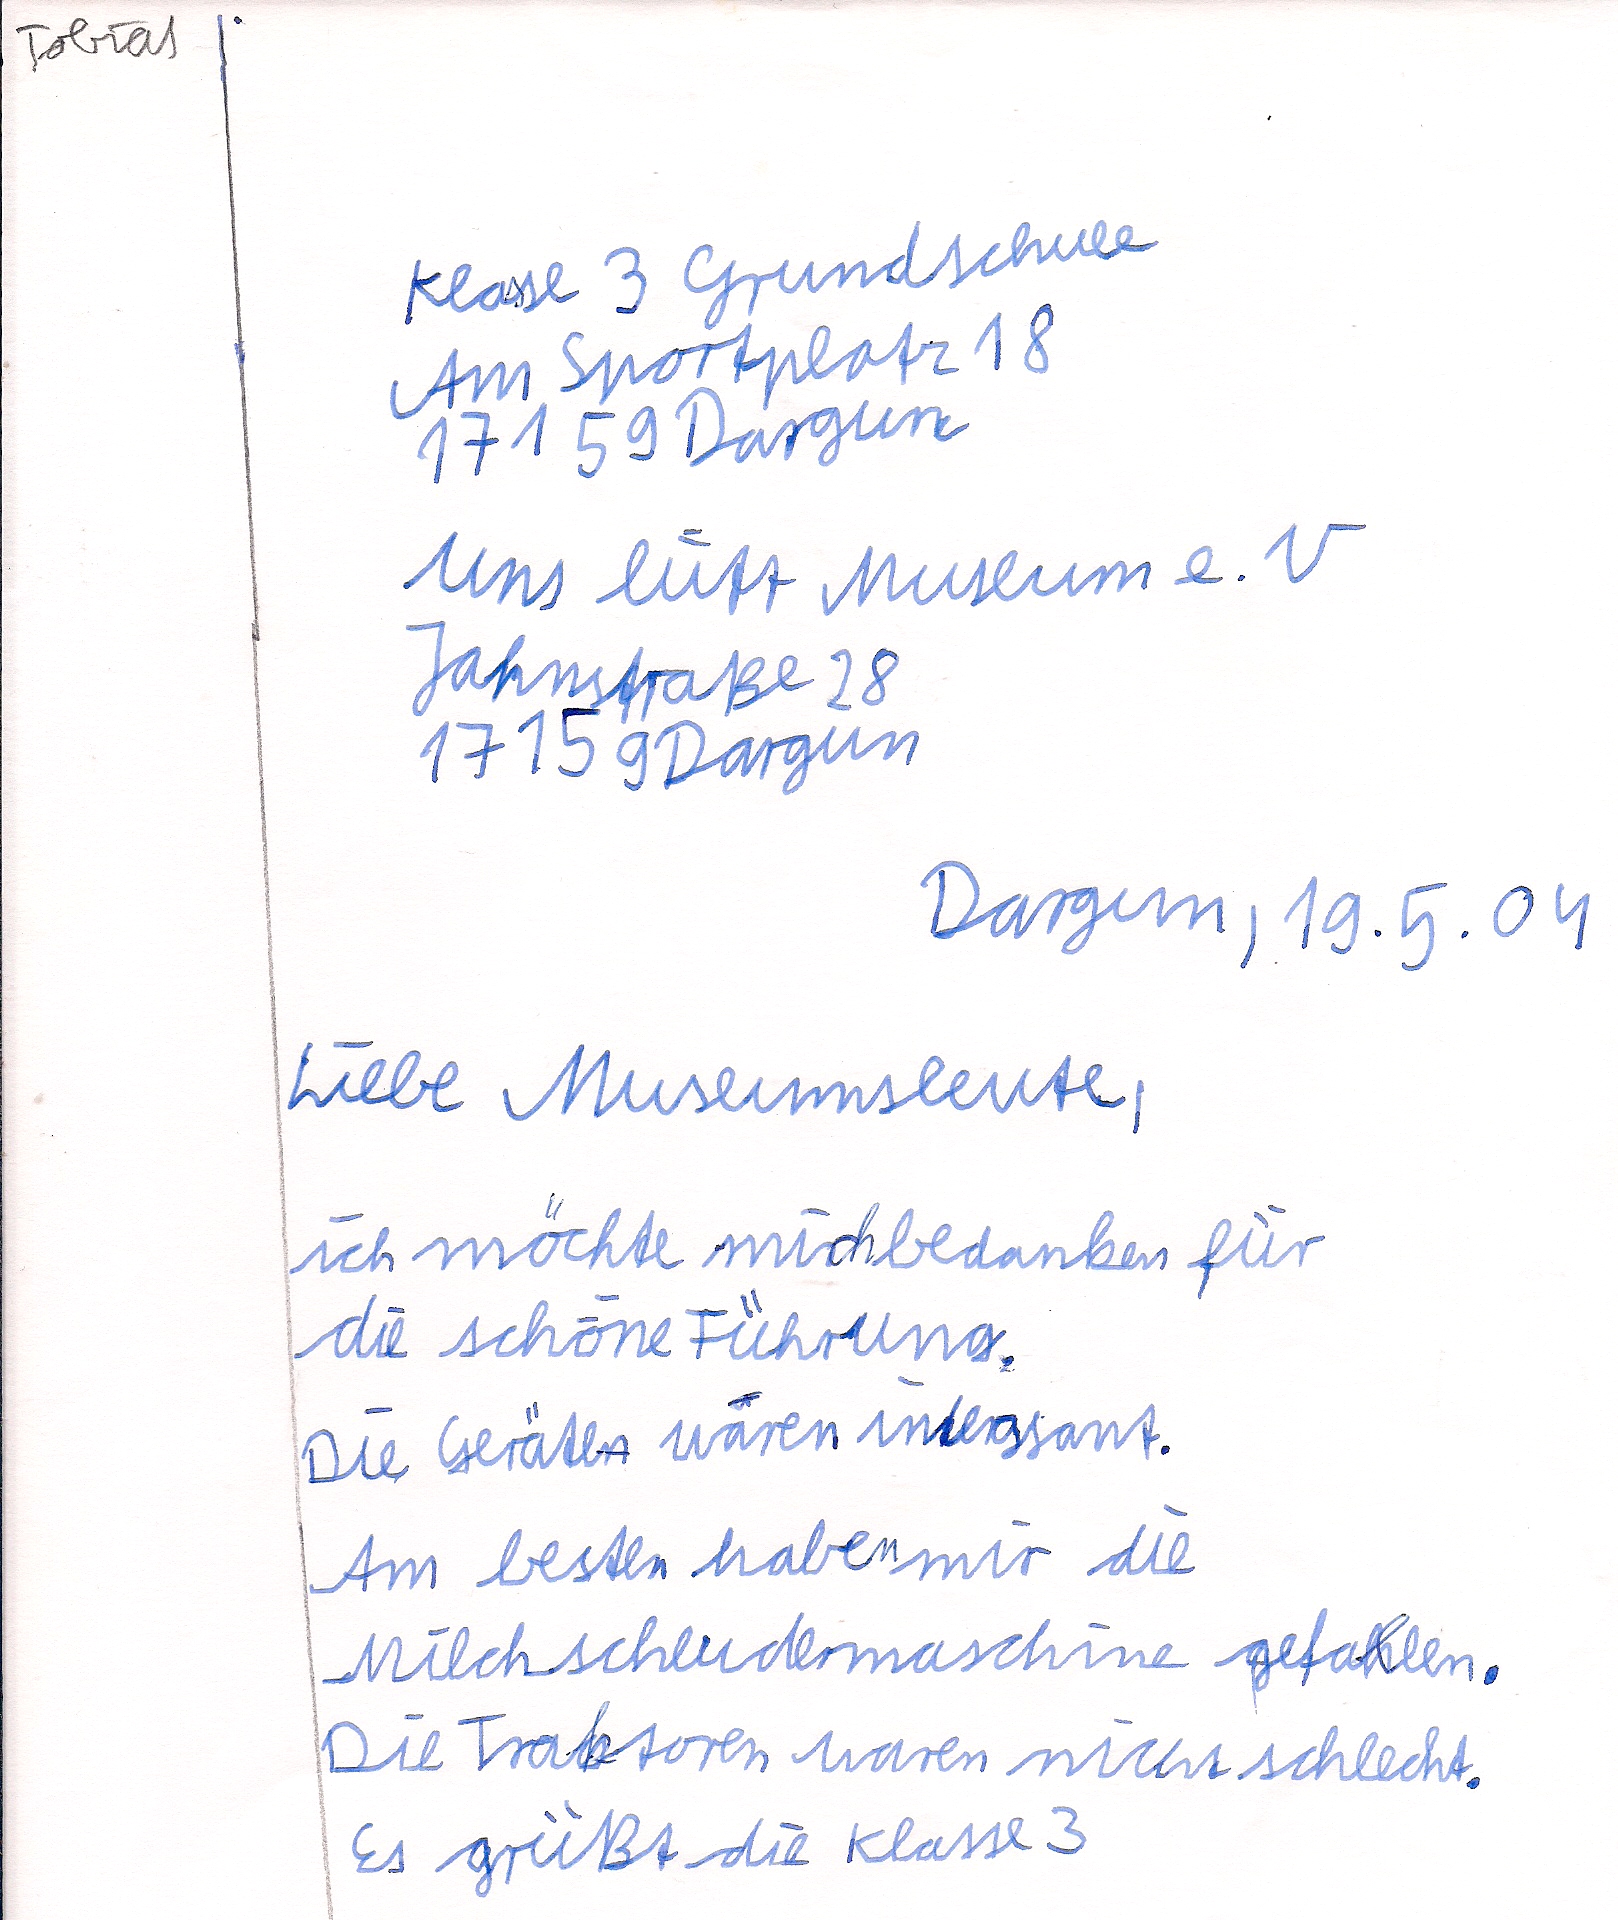 Tobias
Klasse 3 Grundschule
Am Sportplatz 18
17159 Dargun
Uns lütt Museum e. V
Jahnstraße 28
17159 Dargun
Dargun, 19.5.04
Liebe Museumsleute,
ich möchte mich bedanken für
die schöne Führung.
Die Geräten wären interssant.
Am besten haben mir die
Milchschleudermaschine gefallen.
Die Traktoren waren nicht schlecht.
Es grüßt die Klasse 3